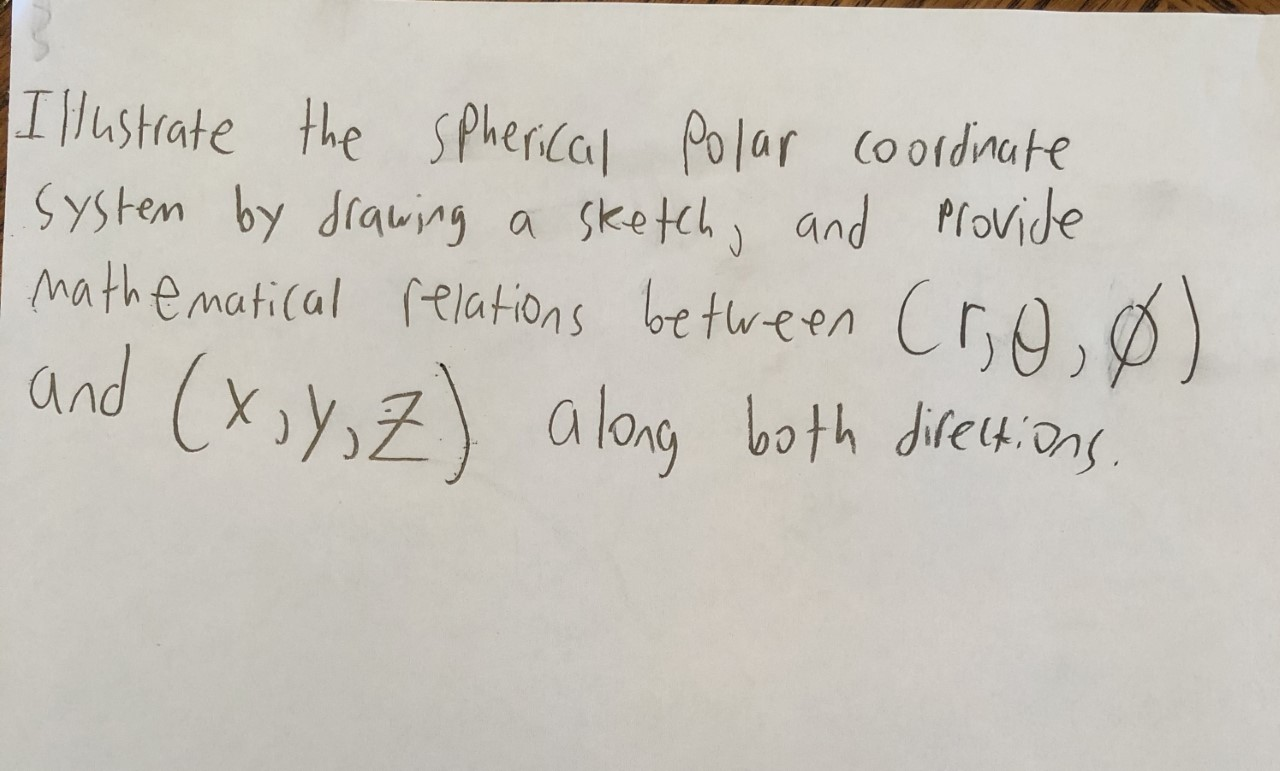 Illustrate the spherical Polar coordinate
system by drawing a sketch, and provide
mathematical relations between (r,θ,ϕ)
and (x,y,z) along both directions.